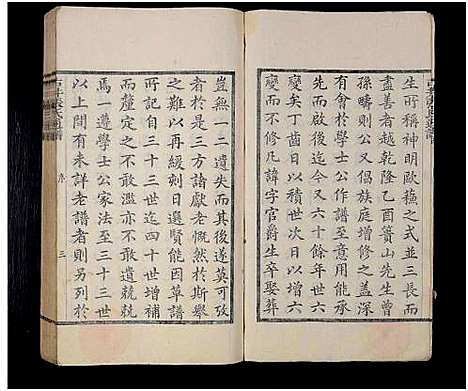 生所稱神明歐蘓之式並三長而
盡善者越乾隆乙酉簣山先生曾
孫疇則公又倡族庭增修之蓋深
有會於學士公作譜至意用能承
先而啟後迄今又六十餘年世六
變矣丁齒日以增四方日以積六
而不修凡諱字官爵生卒娶葬
豈無一二遺失而其後遂莫可攷
者於是三方諸獻老慨然於斯舉
之難以再緩剋日選賢能因草譜
所記自三十三世迄四十世增補
而釐定之不敢濫亦不敢遺兢兢
焉一遵學士公家法至三十三世
以上間有未詳老譜者則另列於
序
三